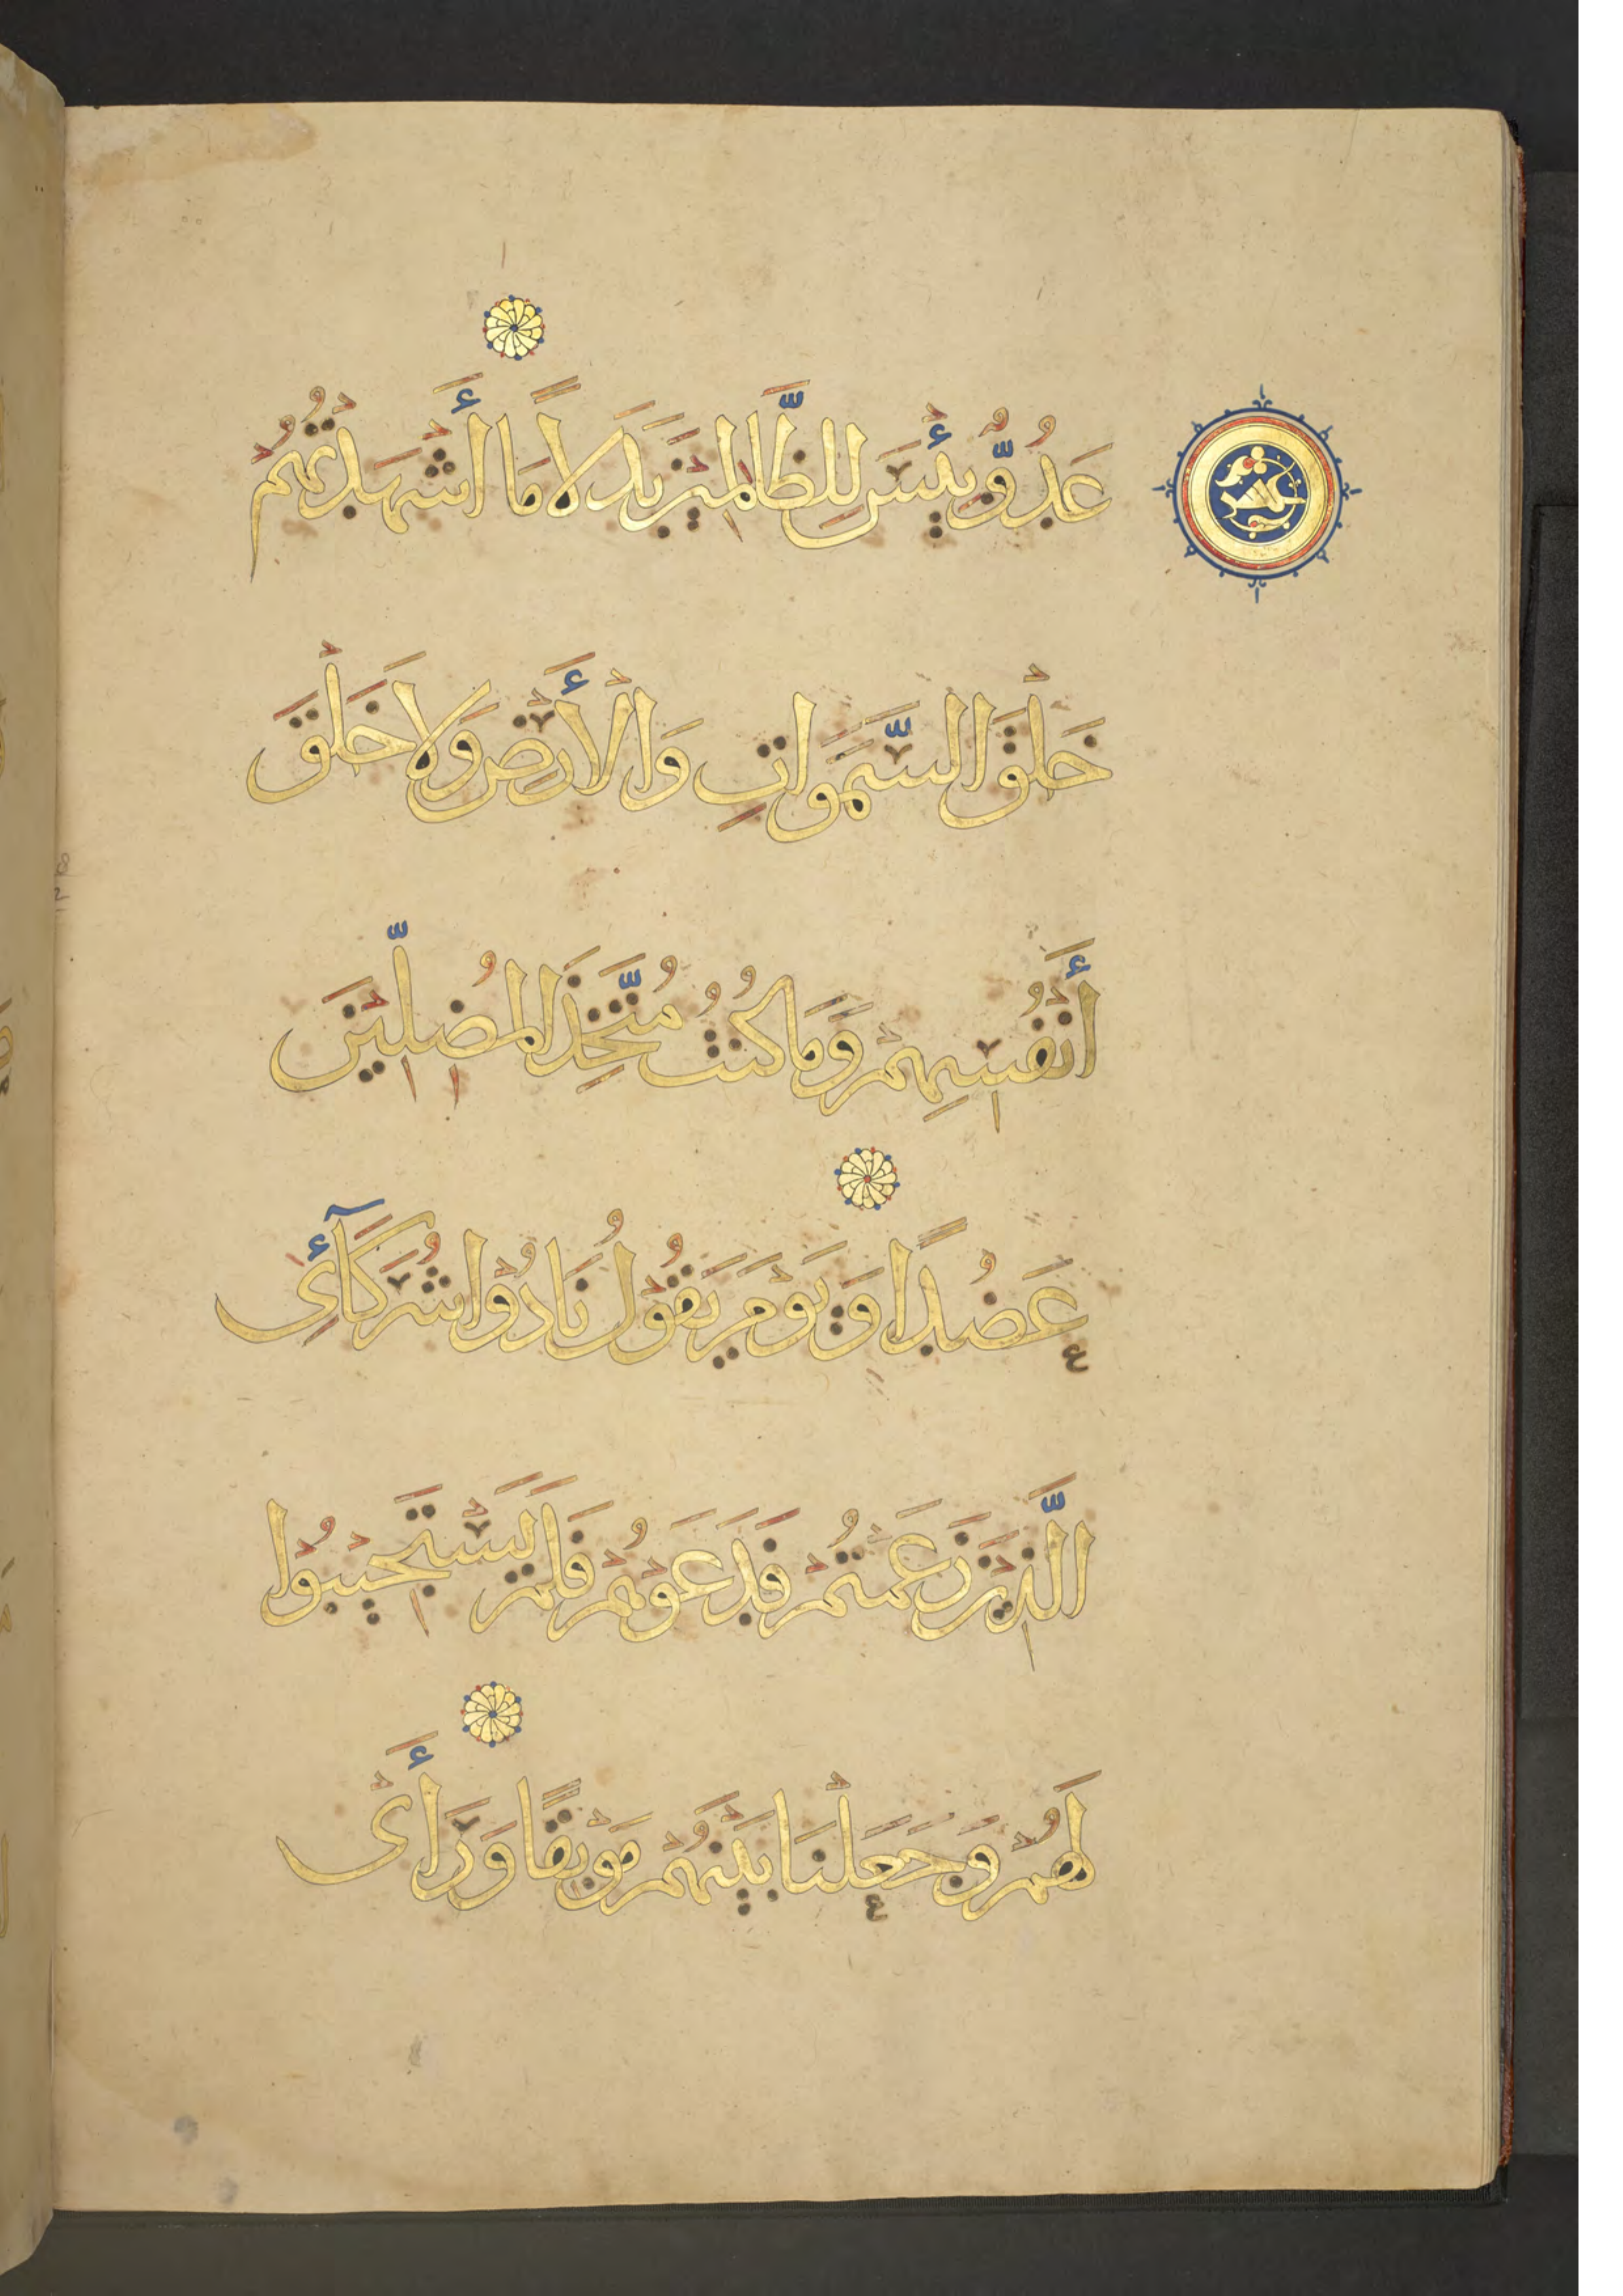 عَدُوٌّ بِئْسَ لِلظَّالِمِيْنَ بَدَلًا مَا أَشْهَدْتُهُمْ
خَلْقَ السَّمَوَاتِ وَالْأَرْضِ وَلَا خَلْقَ
أَنْفُسِهِمْ وَمَا كُنْتُ مُتَّخِذَ الْمُضِلِّيْنَ
عَضُدًا وَيَوْمَ يَقُوْلُ نَادُوْا شُرَكَآئِيَ
الَّذِيْنَ زَعَمْتُمْ فَدَعَوْهُمْ فَلَمْ يَسْتَجِيْبُوْا
لَهُمْ وَجَعَلْنَا بَيْنَهُمْ مَوْبِقًا وَرَأَى